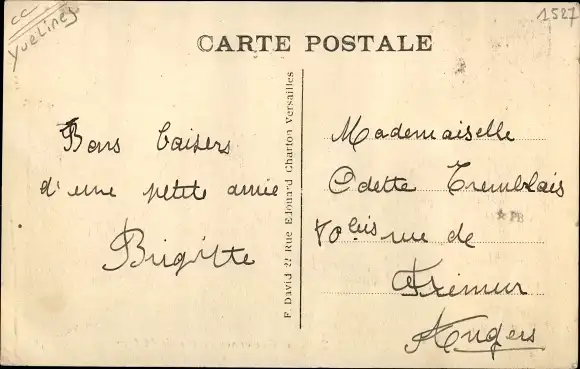 CC
Yvelines
1527
CARTE POSTALE
Bons baisers
d'une petite amie
Brigitte
F. David 22 Rue Edouard Charton Versailles
Mademoiselle
Odette Tremblais
70 bis rue de
Frémur
Angers